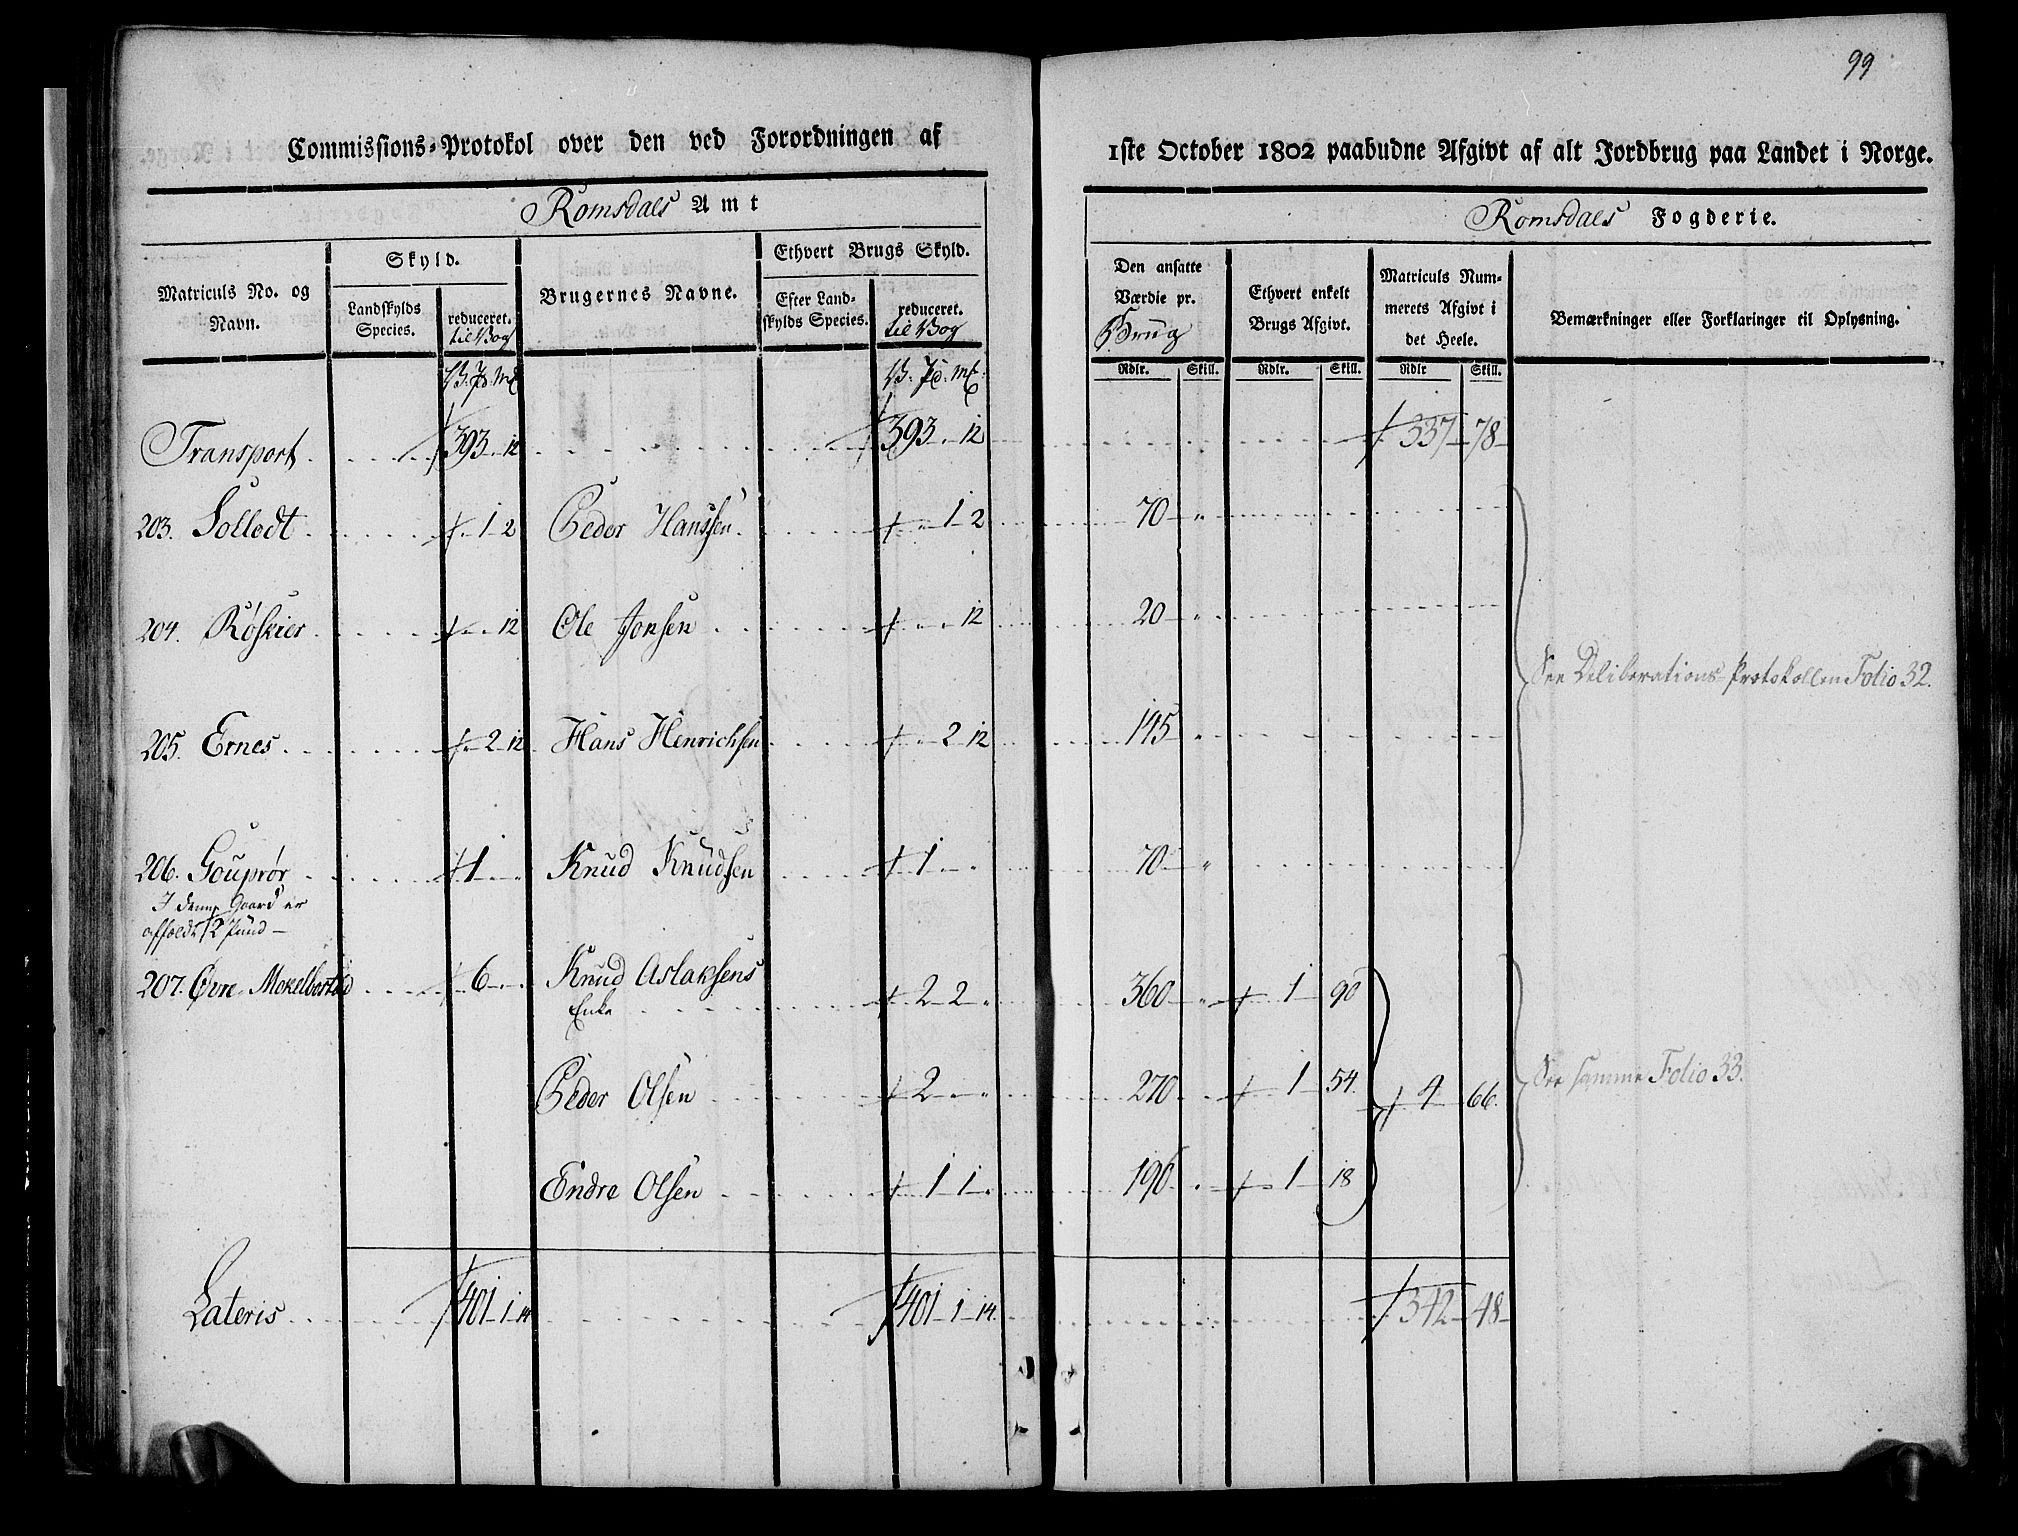 99
Commissions-Protokol over den ved Forordningen af
1ste October 1802 paabudne Afgivt af alt Jordbrug paa Landet i Norge.
Romsdals Amt
Romsdals Fogderie.
Matriculs No. og Navn.
Skyld.
Landskylds Species.
reduceret. til Vog
Brugernes Navne.
Ethvert Brugs Skyld.
Efter Landskylds Species.
reduceret. til Vog
Den ansatte Værdie pr. Brug
Ethvert enkelt Brugs Afgivt.
Matriculs Nummerets Afgivt i det Heele.
Bemærkninger eller Forklaringer til Oplysning.
V. Pd. mk V. Pd. mk Rdlr. Skill. Rdlr. Skill. Rdlr Skill.
Transport 393 " 12 393 " 12 337 78
203. Solledt 1 2 Peder Hanssen 1 2 70 "
204. Røskier 12 Ole Jonsen 12 20 "
See Deliberations Protokollen Folio 32.
205. Ernes 2 12 Hans Henrichsen 2 12 145 "
206. Gouprør 1 Knud Knudsen 1 70 "
I denne Gaard er
affældt 2 Pund
207. Øvre Mekelbostad 6 Knud Aslaksens
Enke 2 2 360 " 1 90
Peder Olsen 2 270 1 54 4 66
See samme Folio 33.
Endre Olsen 1 1 190 1 18
Lateris 401 1 14 401 1 14 342 48